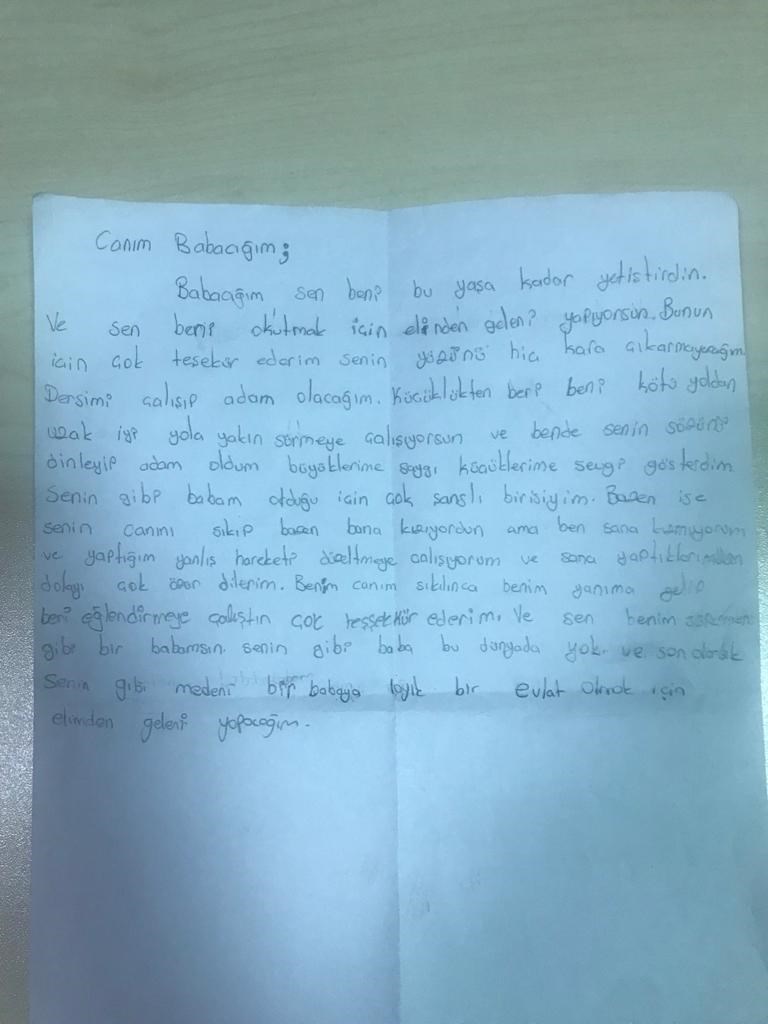 Canım Babacığım;
Babacığım sen beni bu yaşa kadar yetistirdin.
Ve sen beni okutmak için elinden geleni yapıyorsun. Bunun
icin çok teşekür ederim senin yüzünü hic kara çıkarmayacağım
Dersimi çalışıp adam olacağım. Küçüklükten beri beni kötü yoldan
uzak iyi yola yakın sürmeye çalışıyorsun ve bende senin sözünü
dinleyip adam oldum büyüklerime saygı küçüklerime sevgi gösterdim
Senin gibi babam olduğu icin çok sanslı birisiyim. Bazen ise
senin canını sıkıp bazen bana kızıyordun ama ben sana kızmıyorum
ve yaptığım yanlış hareketi düzeltmeye çalışıyorum ve sana yaptıklarımdan
dolayı çok özür dilerim. Benim canım sıkılınca benim yanıma gelip
beni eğlendirmeye çalıştın çok teşşekkür ederim. Ve sen benim
gibi bir babamsın. senin gibi baba bu dünyada yok. ve son olarak
Senin gibi medeni bir babaya layık bir evlat olmak için
elimden geleni yapacağım.